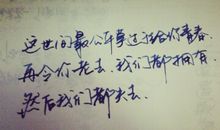 这世间最公平莫过于给你青春
再令你老去.我们都拥有.
然后我们都失去.